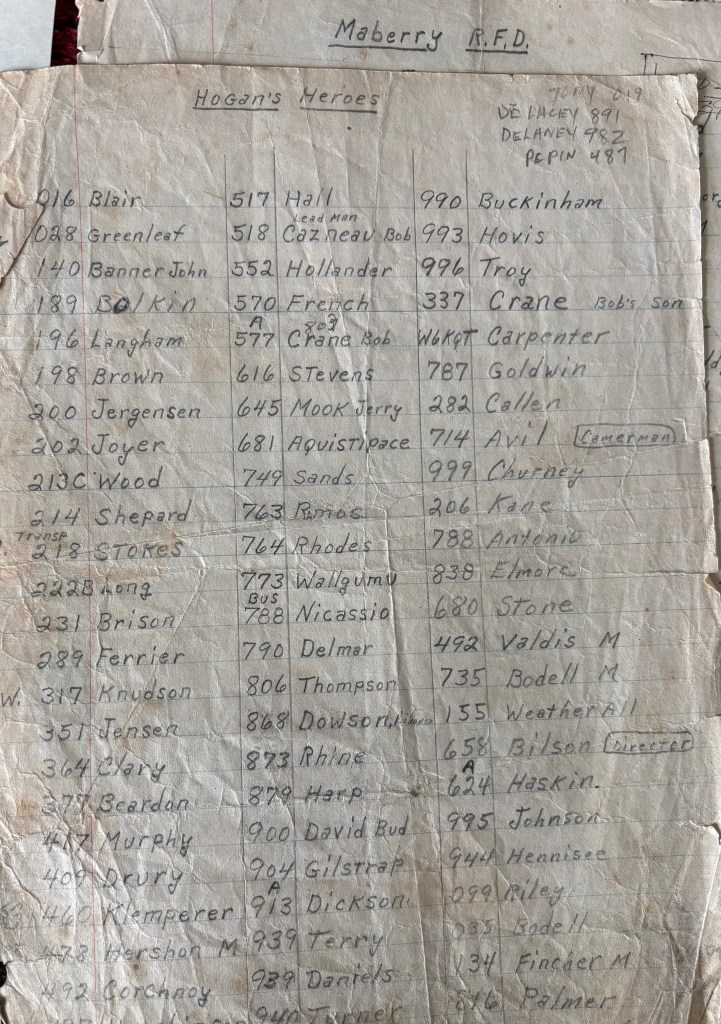 Maberry R.F.D.
Hogan's Heroes
Tony 019
DE LACEY 891
DELANEY 982
PEPIN 487
016 Blair 517 Hall 990 Buckinham
Lead Man
028 Greenleaf 518 Cazneau Bob 993 Hovis
140 Banner John 552 Hollander 996 Troy
189 Bolkin 570 French 337 Crane Bob's Son
A 803
196 Langham 577 Crane Bob W6KQT Carpenter
198 Brown 616 Stevens 787 Goldwin
200 Jergensen 645 Mook Jerry 282 Callen
202 Joyer 681 Aquistipace 714 Avil Camerman
213C Wood 749 Sands 999 Churney
214 Shepard 763 Ramos 206 Kane
Transp
218 Stokes 764 Rhodes 788 Antonio
222B Long 773 Wallgumy 838 Elmore
BUS
231 Brison 788 Nicassio 680 Stone
289 Ferrier 790 Delmar 492 Valdis M
W. 317 Knudson 806 Thompson 735 Bodell M
351 Jensen 868 Dowson, 155 Weather All
364 Clary 873 Rhine 658 Bilson Director
A
377 Beardon 879 Harp 624 Haskin.
417 Murphy 900 David Bud 995 Johnson
409 Drury 904 Gilstrap 944 Hennisee
A
460 Klemperer 913 Dickson 099 Riley
478 Hershon M 939 Terry 035 Bodell
492 Corchnoy 939 Daniels 134 Fincher M
940 Turner 816 Palmer